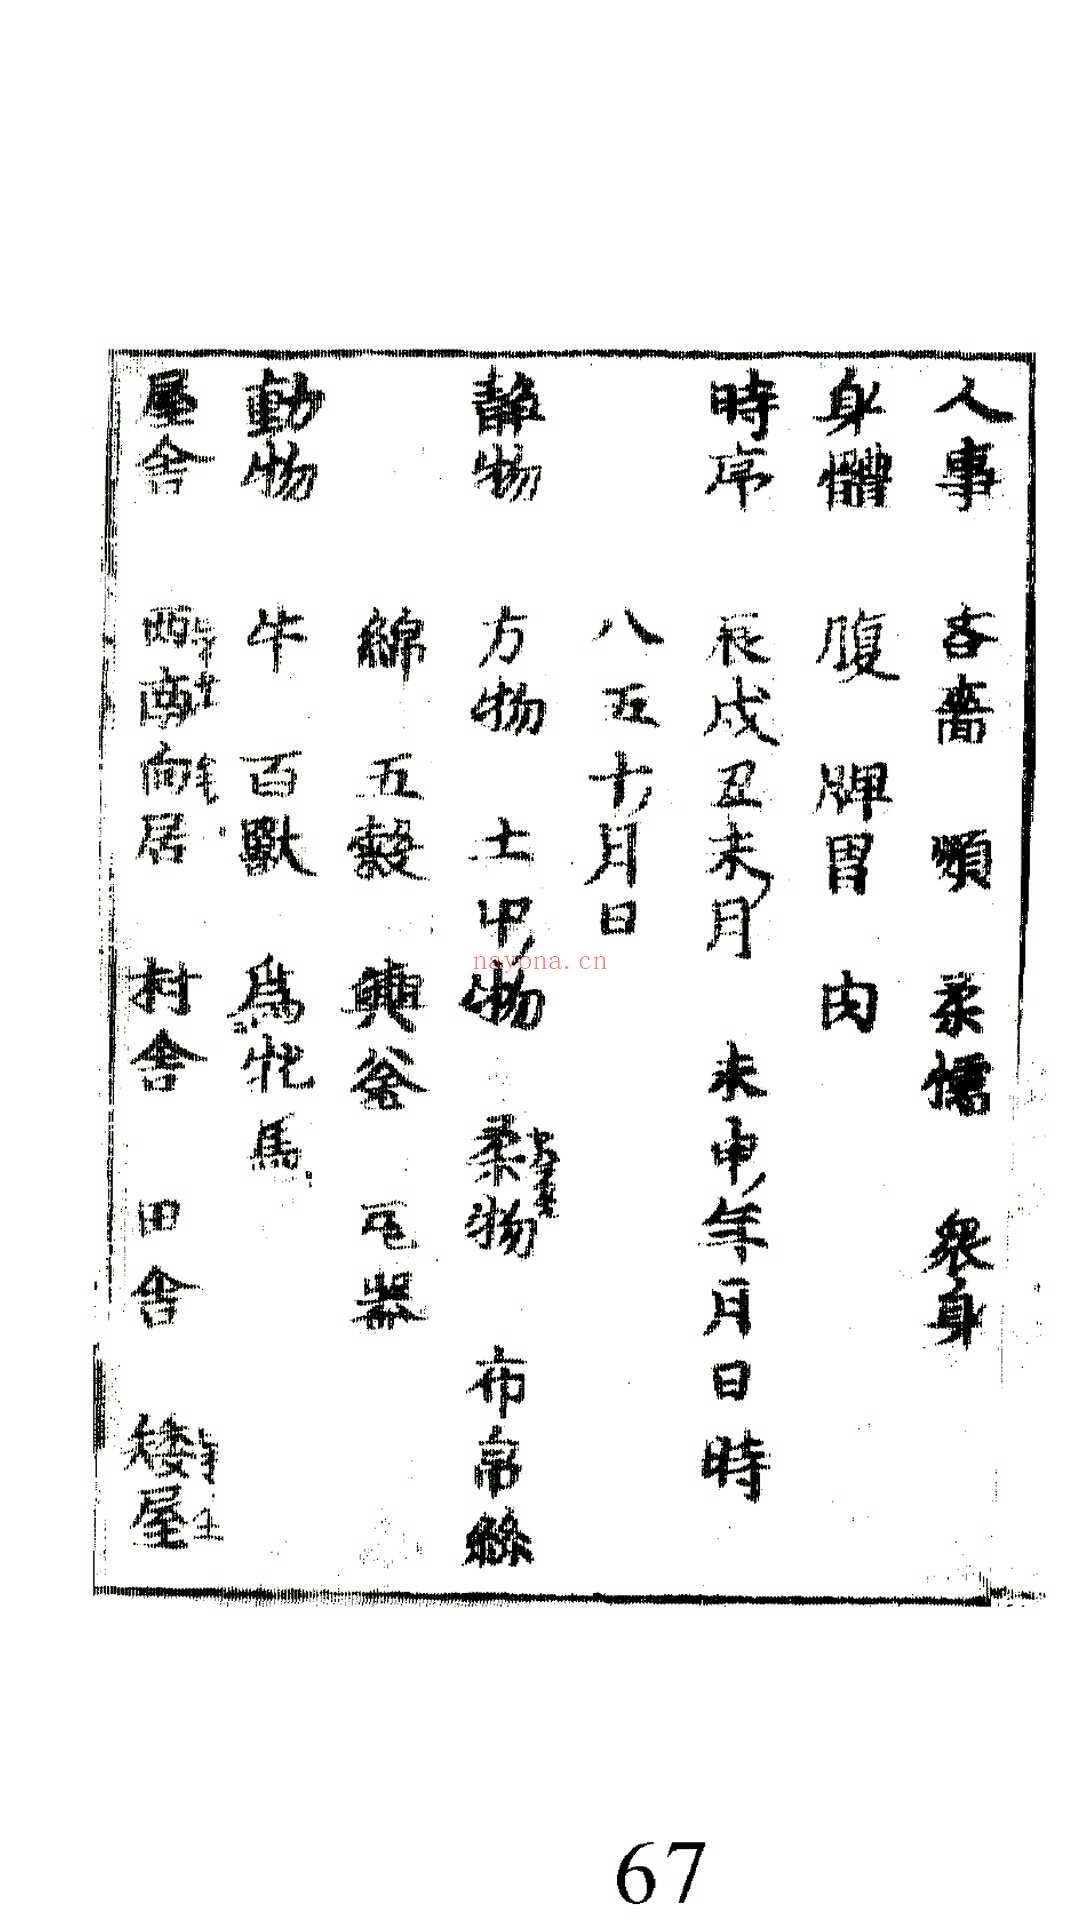 人事 吝嗇 順 柔懦 衆身
身體 腹 脾胃 肉
時序 辰戌丑未月 未申年月日時
八五十月日
靜物 方物 土中物 柔物 布帛絲
綿 五穀 輿釜 瓦器
動物 牛 百獸 爲牝馬
屋舍 西南向居 村舍 田舍 矮屋
nayona.cn
67